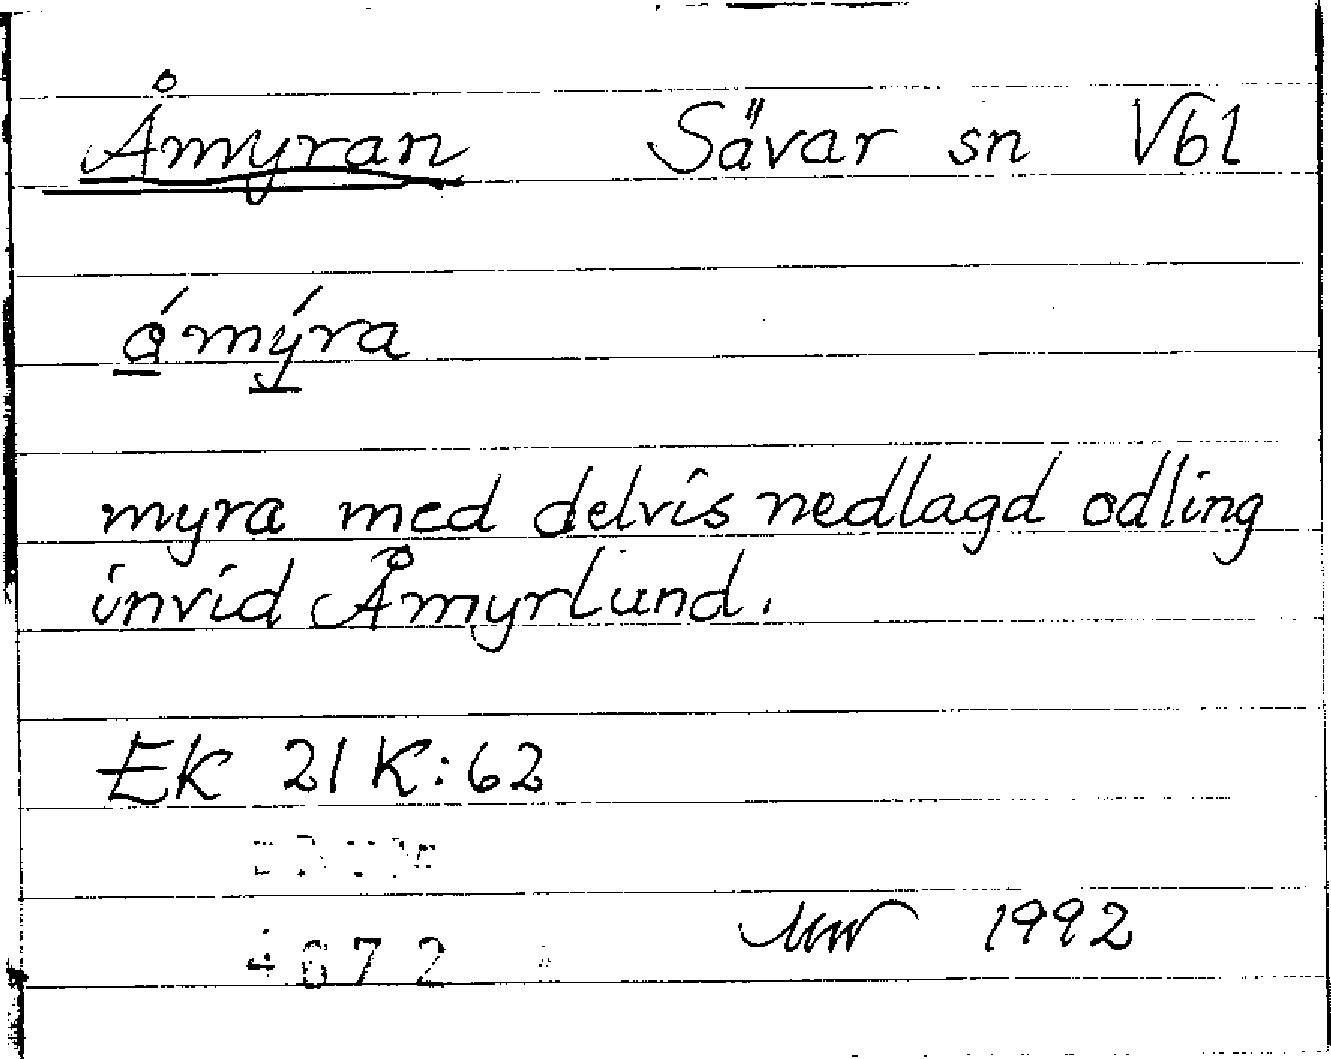 Åmyran Sävar sn Vbl
ámýra
myra med delvis nedlagd odling
invid Åmyrlund.
EK 21 K:62
4672
1992